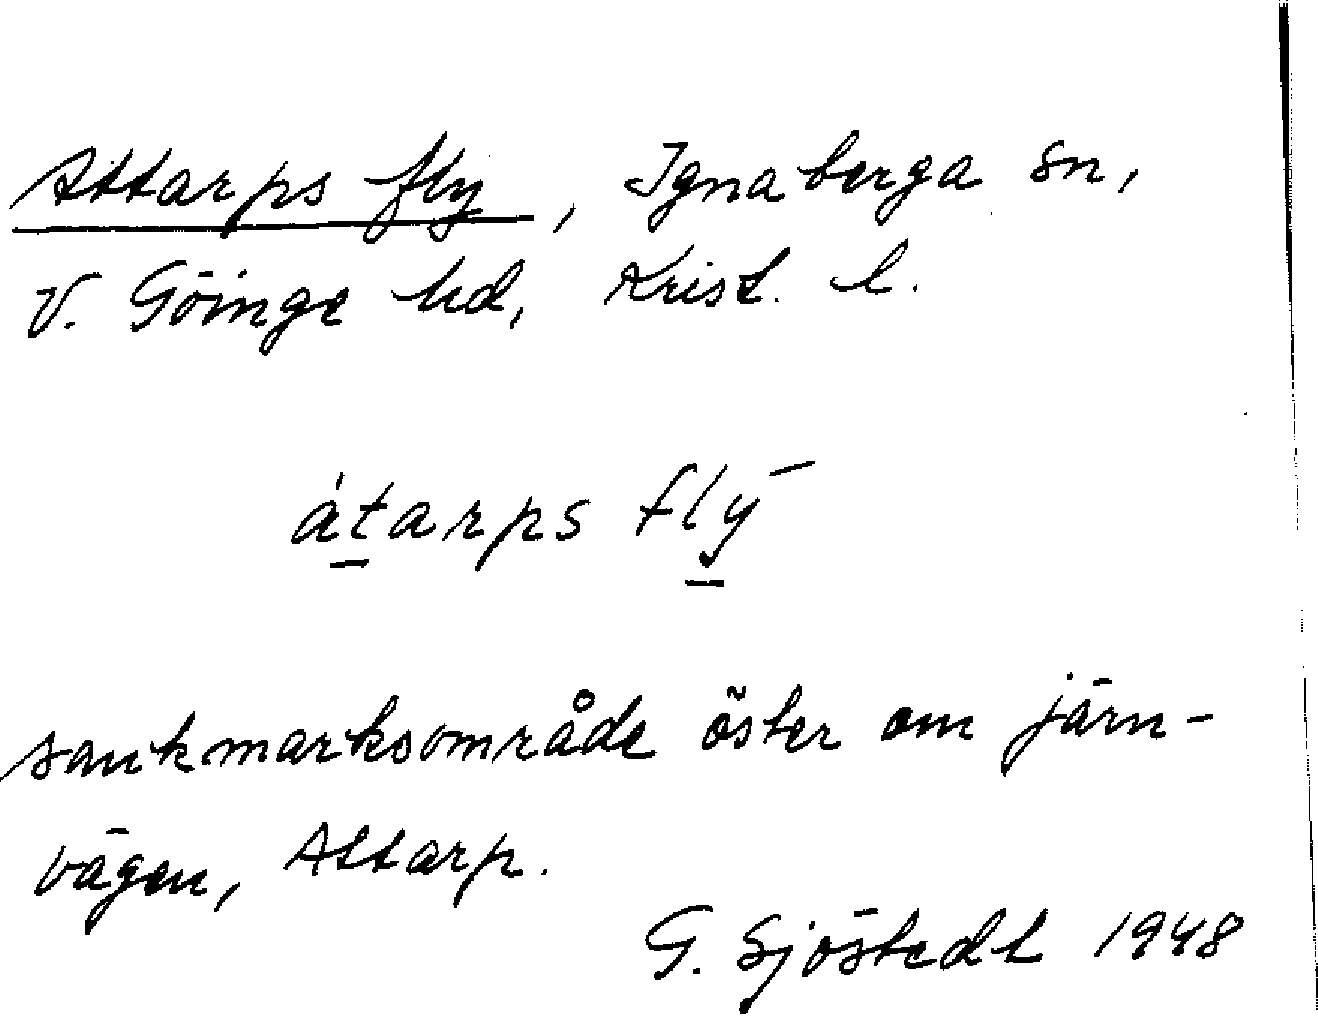 Attarps fly, Ignaberga sn,
V. Göinge hd, Krist. l.
átarps flȳ
sankmarksområde öster om järn-
vägen, Attarp.
G. Sjöstedt 1948